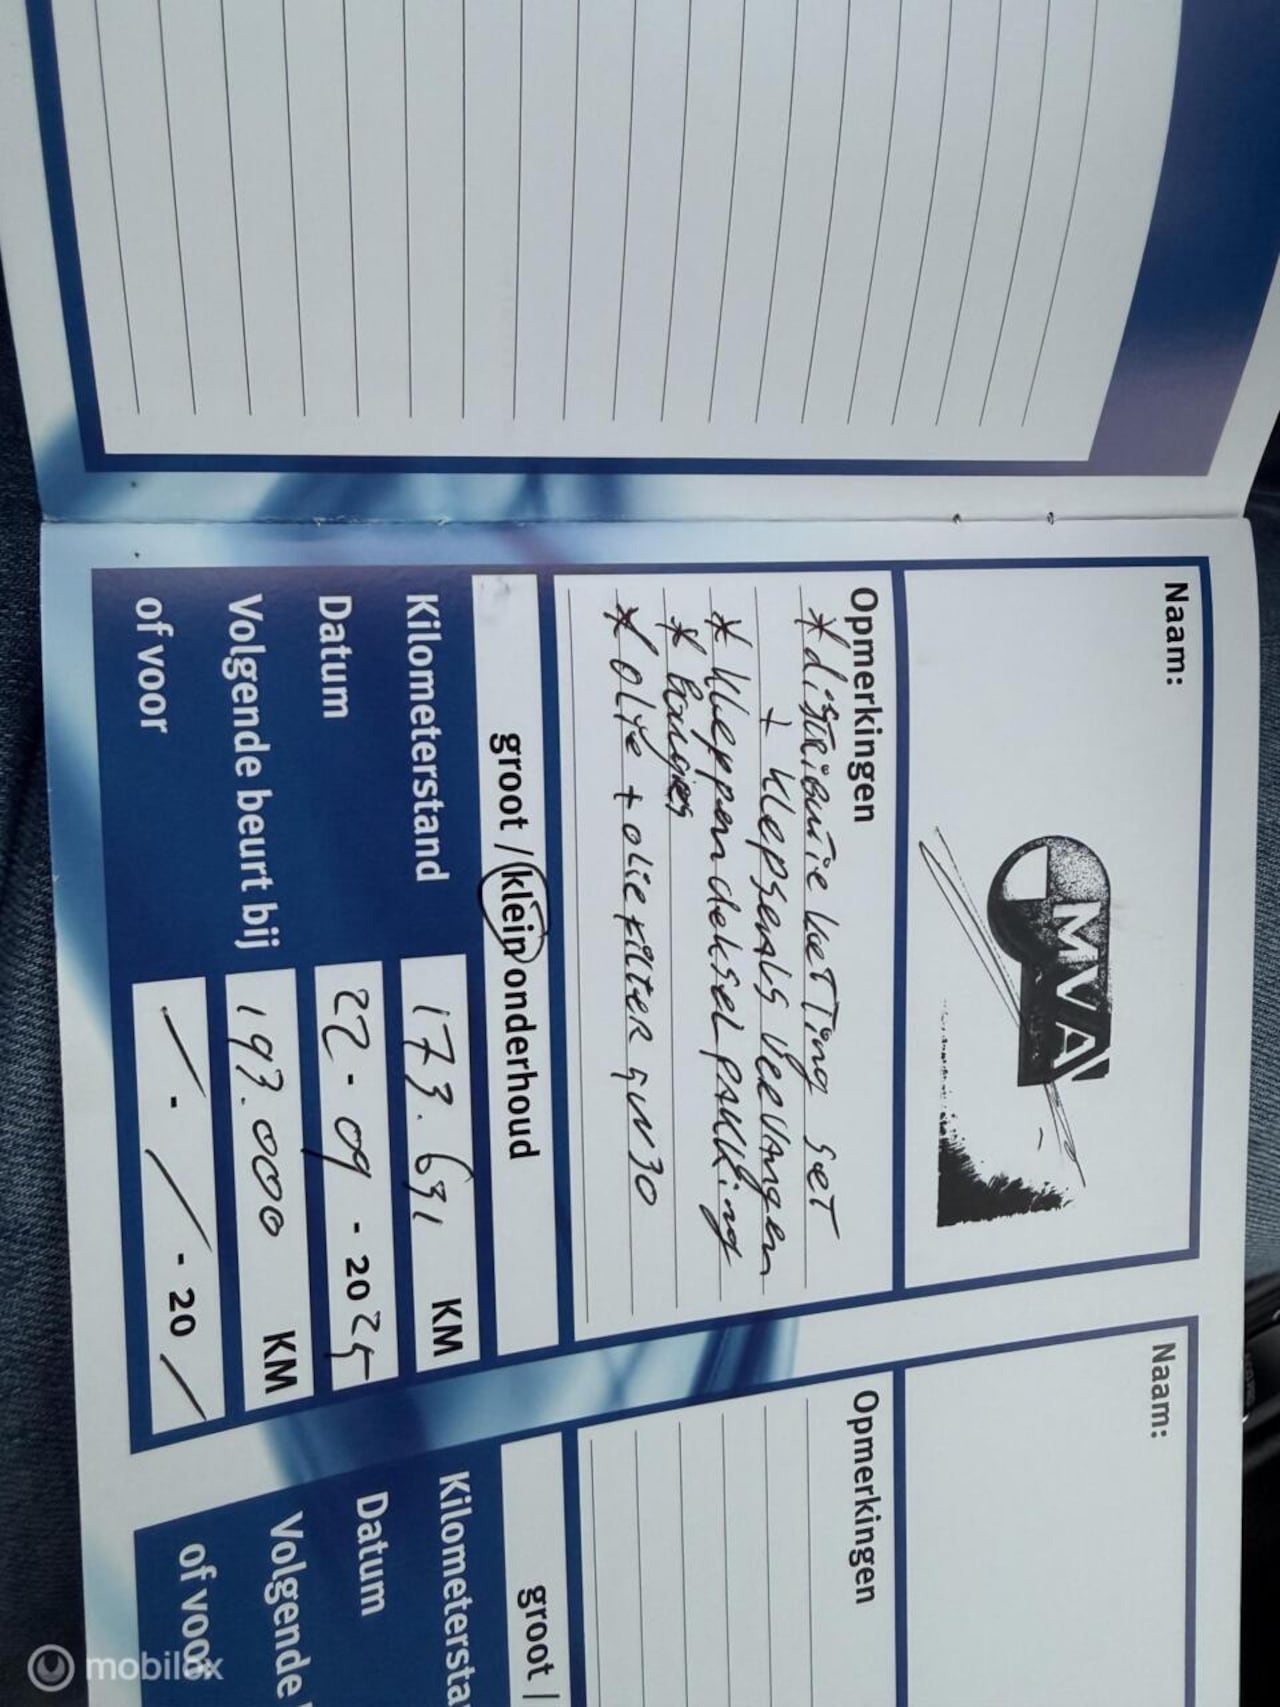 Naam:
MVA
Opmerkingen
* distributie ketting set
+ klepseals vervangen
* kleppendeksel pakking
* bougies
* olie + oliefilter 5W30
groot / klein onderhoud
Kilometerstand 173.691 KM
Datum 22 - 09 - 2025
Volgende beurt bij 193.000 KM
of voor / - / - 20 /
Naam:
Opmerkingen
groot /
Kilometersta
Datum
Volgende
of voor
mobilox